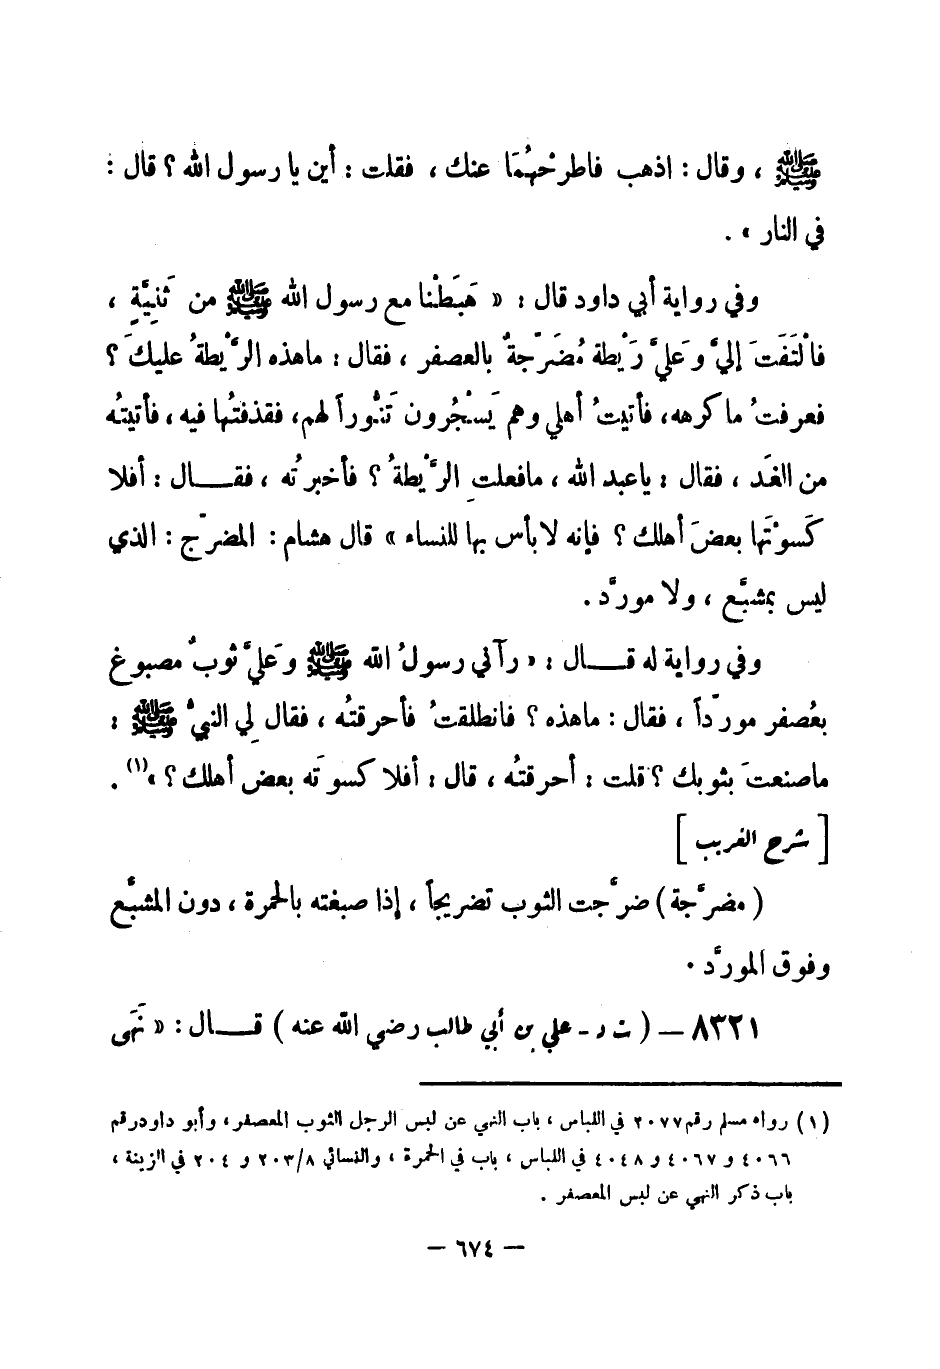 ﷺ ، وقال : اذهب فاطرحْهُمَا عنك ، فقلت : أين يا رسول الله ؟ قال :
في النار » .
وفي رواية أبي داود قال : « هَبَطْنا مع رسول الله ﷺ من ثَنِيَّةٍ ،
فالْتَفَتَ إليَّ وعَليَّ رَيْطة مُضَرّجةٌ بالعصفر ، فقال : ماهذه الرَّيْطةُ عليكَ ؟
فعرفتُ ماكرهه، فأتيتُ أهلي وهم يَسْجُرون تَنُّوراً لهم، فقذفتُها فيه ، فأتيتُه
من الغَد ، فقال : ياعبد الله ، مافعلتِ الرَّيْطةُ ؟ فأخبرتُه ، فقـــال : أفلا
كَسوْتَها بعضَ أهلك ؟ فإنه لابأس بها للنساء » قال هشام : المضرّج : الذي
ليس بمشبَّع ، ولا مورَّد .
وفي رواية له قـــال : « رآني رسولُ الله ﷺ وعَليَّ ثوبٌ مصبوغ
بعُصفر مورّداً ، فقال : ماهذه ؟ فانطلقتُ فأحرقتُه ، فقال لِي النبيُّ ﷺ :
ماصنعتَ بثوبك ؟ قلت : أحرقتُه ، قال : أفلا كسوتَه بعض أهلك ؟ »(١) .
[ شرح الغريب ]
( مضرَّجة ) ضرَّجت الثوب تضريجاً ، إذا صبغته بالحمرة ، دون المشبَّع
وفوق المورَّد .
٨٣٢١ – ( ت د - علي بن أبي طالب رضي الله عنه ) قـــال : « نَهَى
(١) رواه مسلم رقم ٢٠٧٧ في اللباس ، باب النهي عن لبس الرجل الثوب المعصفر ، وأبو داود رقم
٤٠٦٦ و ٤٠٦٧ و ٤٠٤٨ في اللباس ، باب في الحمرة ، والنسائي ٢٠٣/٨ و ٢٠٤ في الزينة ،
باب ذكر النهي عن لبس المعصفر .
– ٦٧٤ –